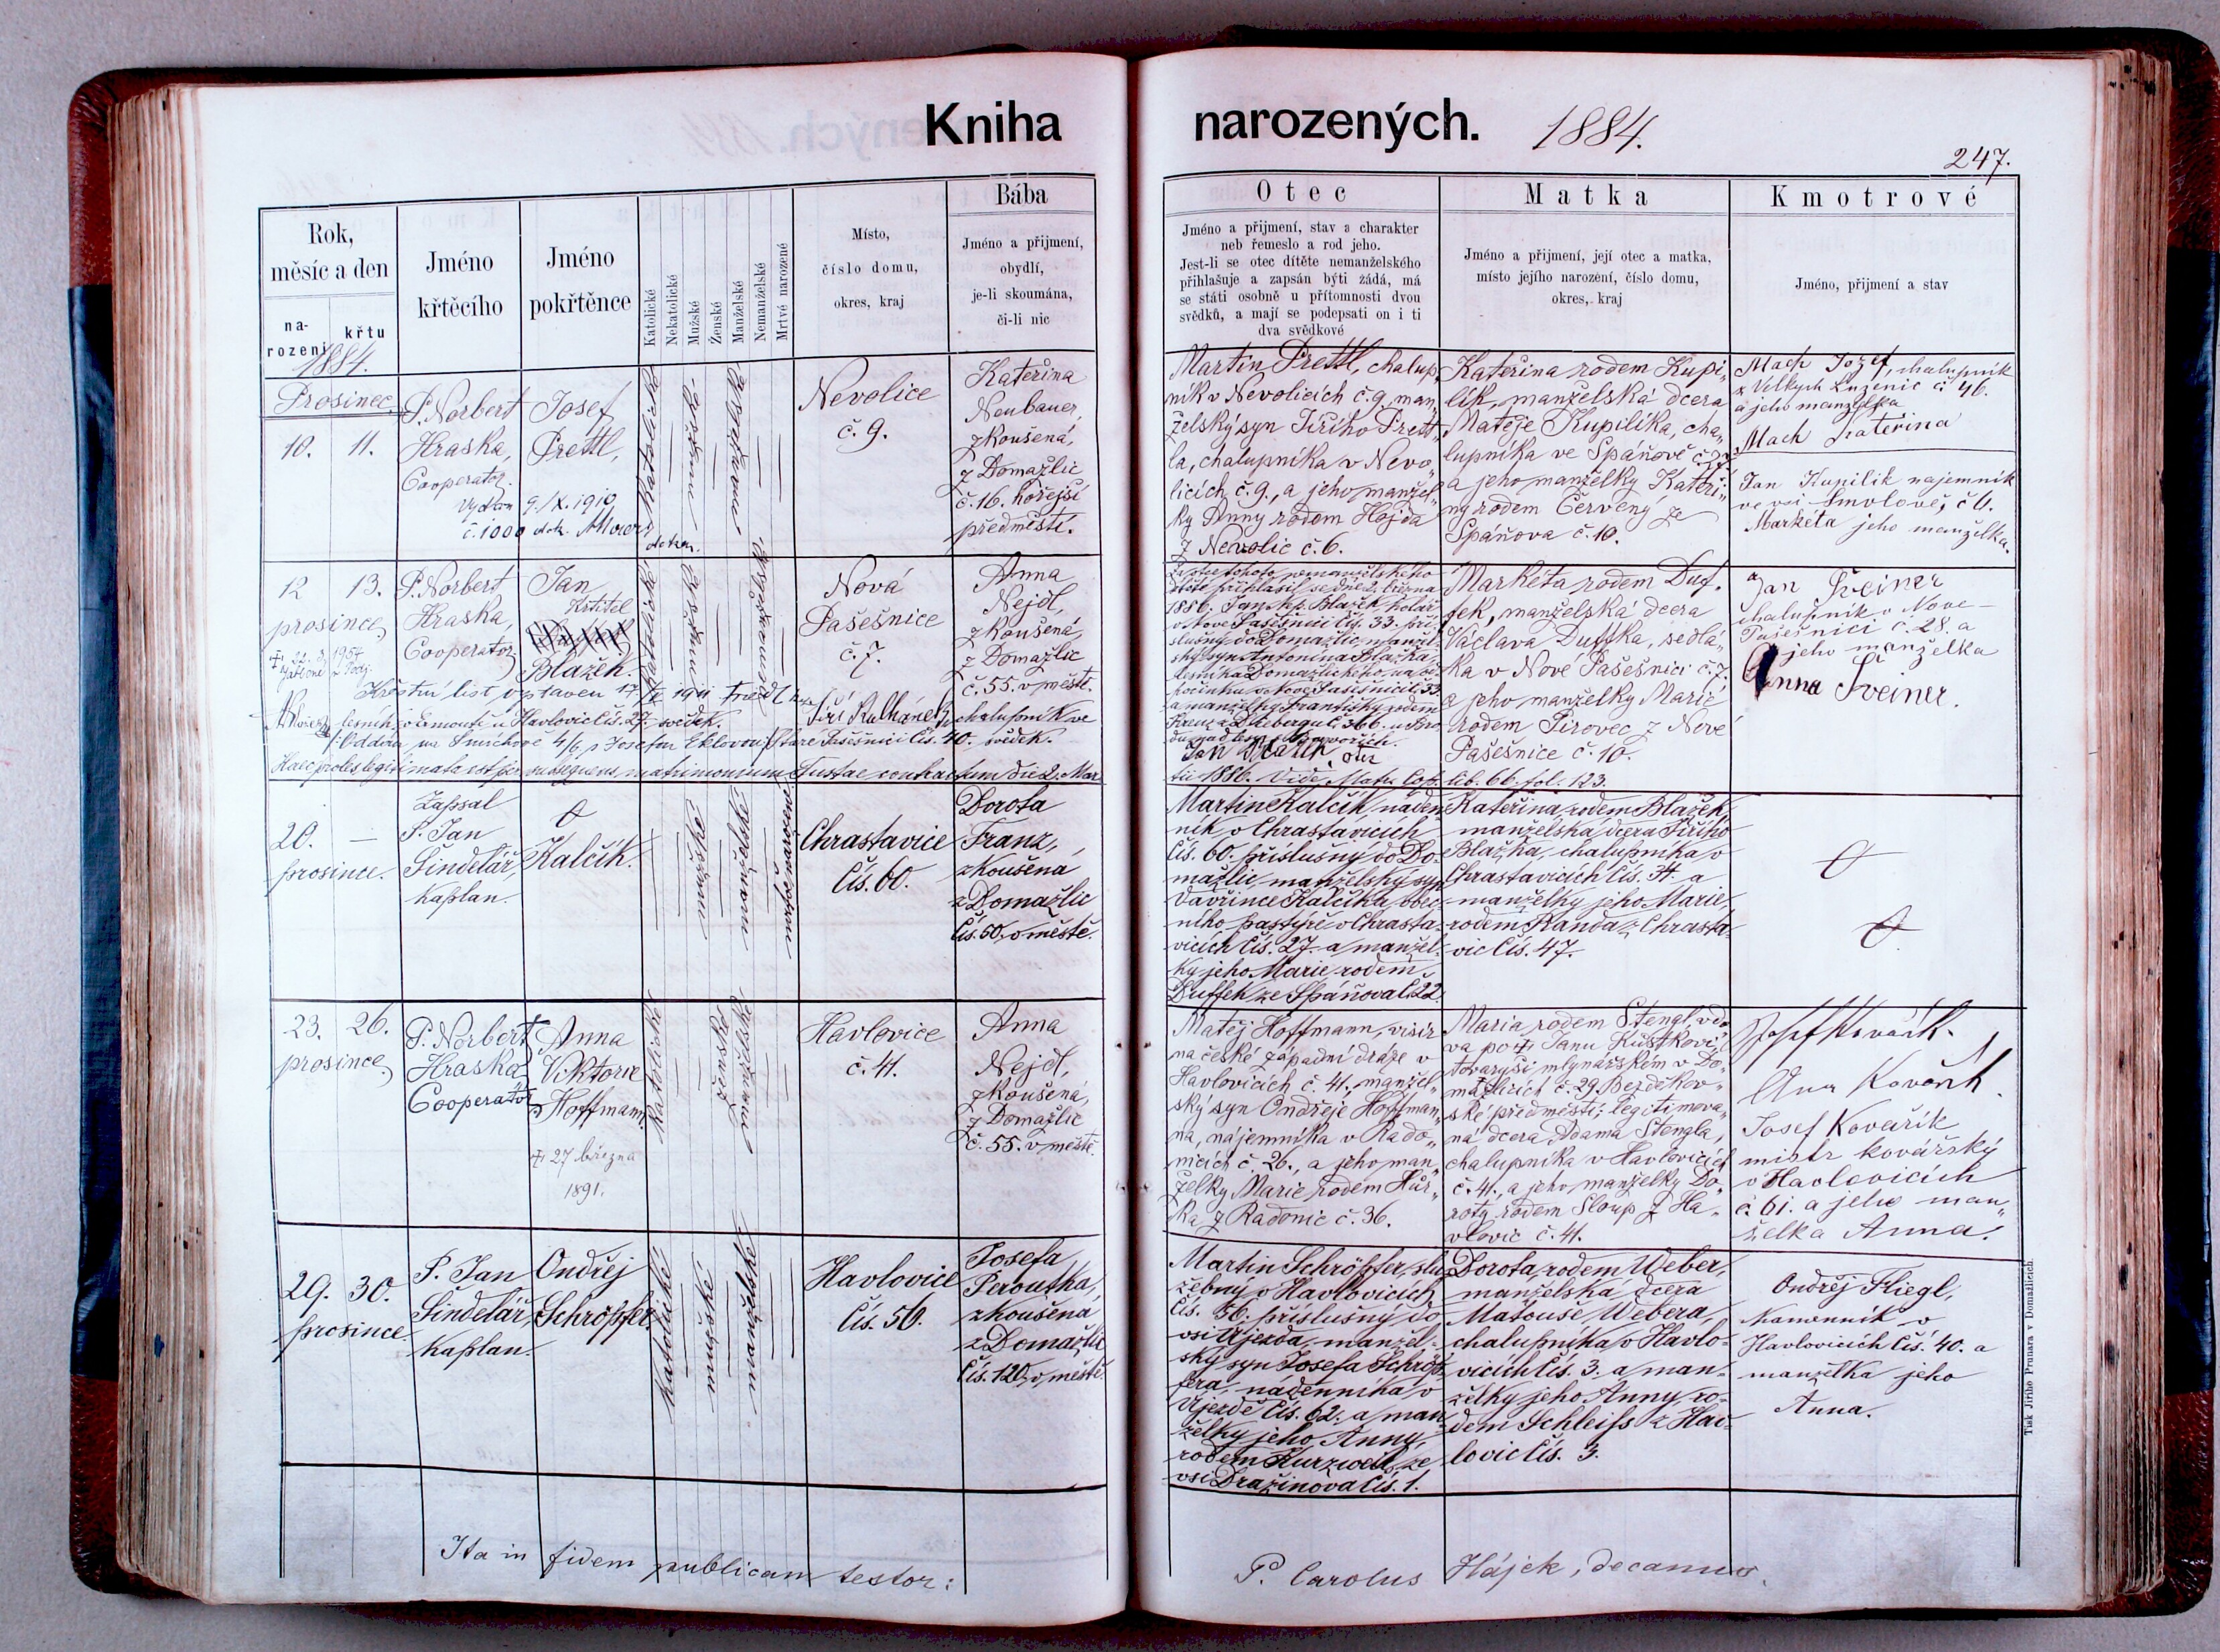 Kniha
narozených. 1884.
247.
Rok,
měsíc a den
na-
rození
křtu
Jméno
křtěcího
Jméno
pokřtěnce
Katolické
Nekatolické
Mužské
Ženské
Manželské
Nemanželské
Mrtvě narozené
Místo,
číslo domu,
okres, kraj
Bába
Jméno a přijmení,
obydlí,
je-li skoumána,
či-li nic
Otec
Jméno a přijmení, stav a charakter
neb řemeslo a rod jeho.
Jest-li se otec dítěte nemanželského
přihlašuje a zapsán býti žádá, má
se státi osobně u přítomnosti dvou
svědků, a mají se podepsati on i ti
dva svědkové
Matka
Jméno a přijmení, její otec a matka,
místo jejího narození, číslo domu,
okres, kraj
Kmotrové
Jméno, přijmení a stav
1884.
Prosinec.
10. 11.
P. Norbert
Hraska,
Cooperator.
Josef
Prettl,
Vydán 9./X. 1910
č. 1000
katolické
mužské
manželské
Nevolice
č. 9.
Kateřina
Neubauer,
zkoušená,
z Domažlic
č. 16. hořejší
předměstí.
Martin Prettl, chalup„
ník v Nevolicích č. 9, man„
želský syn Jiřího Prett„
la, chalupníka v Nevo„
licích č. 9., a jeho manžel„
ky Anny rodem Hojda
z Nevolic č. 6.
Kateřina rodem Kupi„
lík, manželská dcera
Matěje Kupilíka, cha„
lupníka ve Spáňově
a jeho manželky Kateři„
ny rodem Červený ze
Spáňova č. 10.
Mach Jozef, chalupník
z Velkých Luženic č 46.
a jeho manželka
Mach Kateřina
Jan Kupilik najemnik
ve vsi Smolově, č 6.
Markéta jeho manželka.
12 13.
prosince,
P. Norbert
Hraska,
Cooperator.
Jan
Křtitel
Blažek.
katolické
mužské
Nová
Pašešnice
č. 7.
Anna
Nejdl,
zkoušená,
z Domažlic
č. 55. v městě.
Křestní list vystaven 17/
lesník, Havlovic čís. 27. svědek.
Jiří Kulhánek, chalupník ve
Staré Pašešnici čís. 40. svědek.
Haec proles legitimata est per subsequens matrimonium Tustae contractum die 2. Mar
tii 1886. Vide Matr. Cop. lib. 66. fol. 123.
přihlásil se dne 2. března
1886. Jan Blažek kolář
v Nové Pašešnici čís. 33. pří-
slušný do Domažlic, manžel-
ský syn Antonína Blažka
a manželky Františky rodem
Jan Blažek, otec
Markéta rodem Duf„
fek, manželská dcera
Václava Duffka, sedlá„
ka v Nové Pašešnici č. 7.
a jeho manželky Marie
rodem Pirovec z Nové
Pašešnice č. 10.
Jan Šveiner
chalupník v Nove-
Pašešnici č. 28. a
jeho manželka
Anna Šveiner.
20. —
prosince.
Zapsal
P. Jan
Šindelář,
kaplan.
Kalčík.
mužské
manželské
mrtvě narozené
Chrastavice
čís. 60.
Dorota
Franz,
zkoušená
z Domažlic
čís. 60, v městě.
Martin Kalčík, náden-
ník v Chrastavicích
čís. 60. příslušný do Do-
mažlic, manželský syn
Vavřince Kalčíka, obec-
ního pastýře v Chrasta-
vicích čís. 27. a manžel-
ky jeho Marie, rodem
Duffek ze Spáňova č. 22.
Kateřina, rodem Blažek,
manželská dcera Jiřího
Blažka, chalupníka v
Chrastavicích čís. 4. a
manželky jeho Marie,
rodem Randa z Chrasta-
vic čís. 47.
23. 26.
prosince,
P. Norbert
Hraska
Cooperátor
Anna
Viktorie
Hoffmann.
27 března
1891.
Katolické
Ženské
Manželské
Havlovice
č. 41.
Anna
Nejdl,
zkoušená,
z Domažlic
č. 55. v městě.
Matěj Hoffmann,
na české západní dráze v
Havlovicích č. 41, manžel„
ský syn Ondřeje Hoffman„
na, nájemníka v Rado„
nicích č. 26., a jeho man„
želky Marie rodem Hůr„
ka z Radonic č. 36.
Maria rodem Stengl, vdo„
va po † Janu
tovaryši mlynářském v Do„
mažlicích č. 29, Bezděkov„
ské předměstí; legitimova„
ná dcera Adama Stengla,
chalupníka v Havlovicích
č. 41., a jeho manželky Do„
roty rodem Sloup z Ha„
vlovic č. 41.
Josef Kovařík.
Ana Kovařík
Josef Kovařík
mistr kovářský
v Havlovicích
č. 61. a jeho man„
želka Anna.
29. 30.
prosince.
P. Jan
Šindelář,
kaplan.
Ondřej
Schröpfer.
katolické
mužské
manželské
Havlovice
čís. 56.
Josefa
Peroutka,
zkoušená
z Domažlic
čís. 120, v městě.
Martin Schröpfer, slu-
žebný v Havlovicích
čís. 56. příslušný do
vsi Újezda, manžel-
ský syn Josefa Schröp-
fera, nádenníka v
Újezdě čís. 62. a man-
želky jeho Anny,
rodem Kurzweil, ze
vsi Dražinova čís. 1.
Dorota, rodem Weber,
manželská dcera
Matouše Webera,
chalupníka v Havlo-
vicích čís. 3. a man-
želky jeho Anny, ro-
dem Schleiss z Hav-
lovic čís. 3.
Ondřej Fliegl,
kamenník v
Havlovicích čís. 40. a
manželka jeho
Anna.
Ita in fidem publicam testor:
P. Carolus Hájek, decanus.
Tisk Jiřího Prunara v Domažlicích.